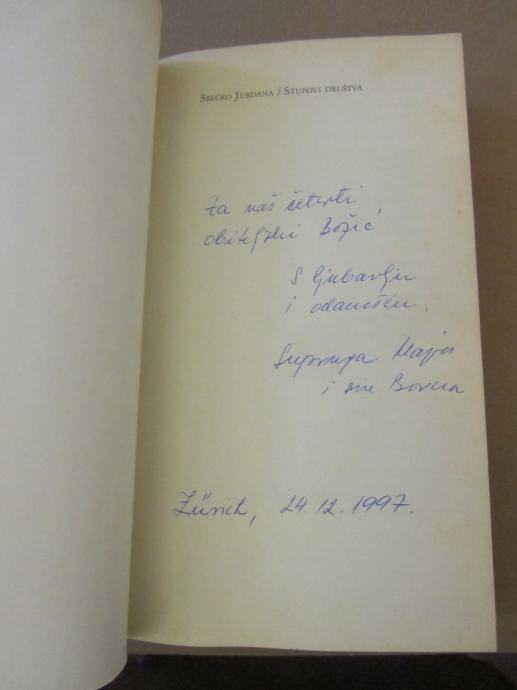 Srećko Jurdana / Stupovi društva
Za naš četvrti
obiteljski Božić
S ljubavlju
i odanošću.
Supruga Maja
i sin Borna
Zürich, 24.12.1997.